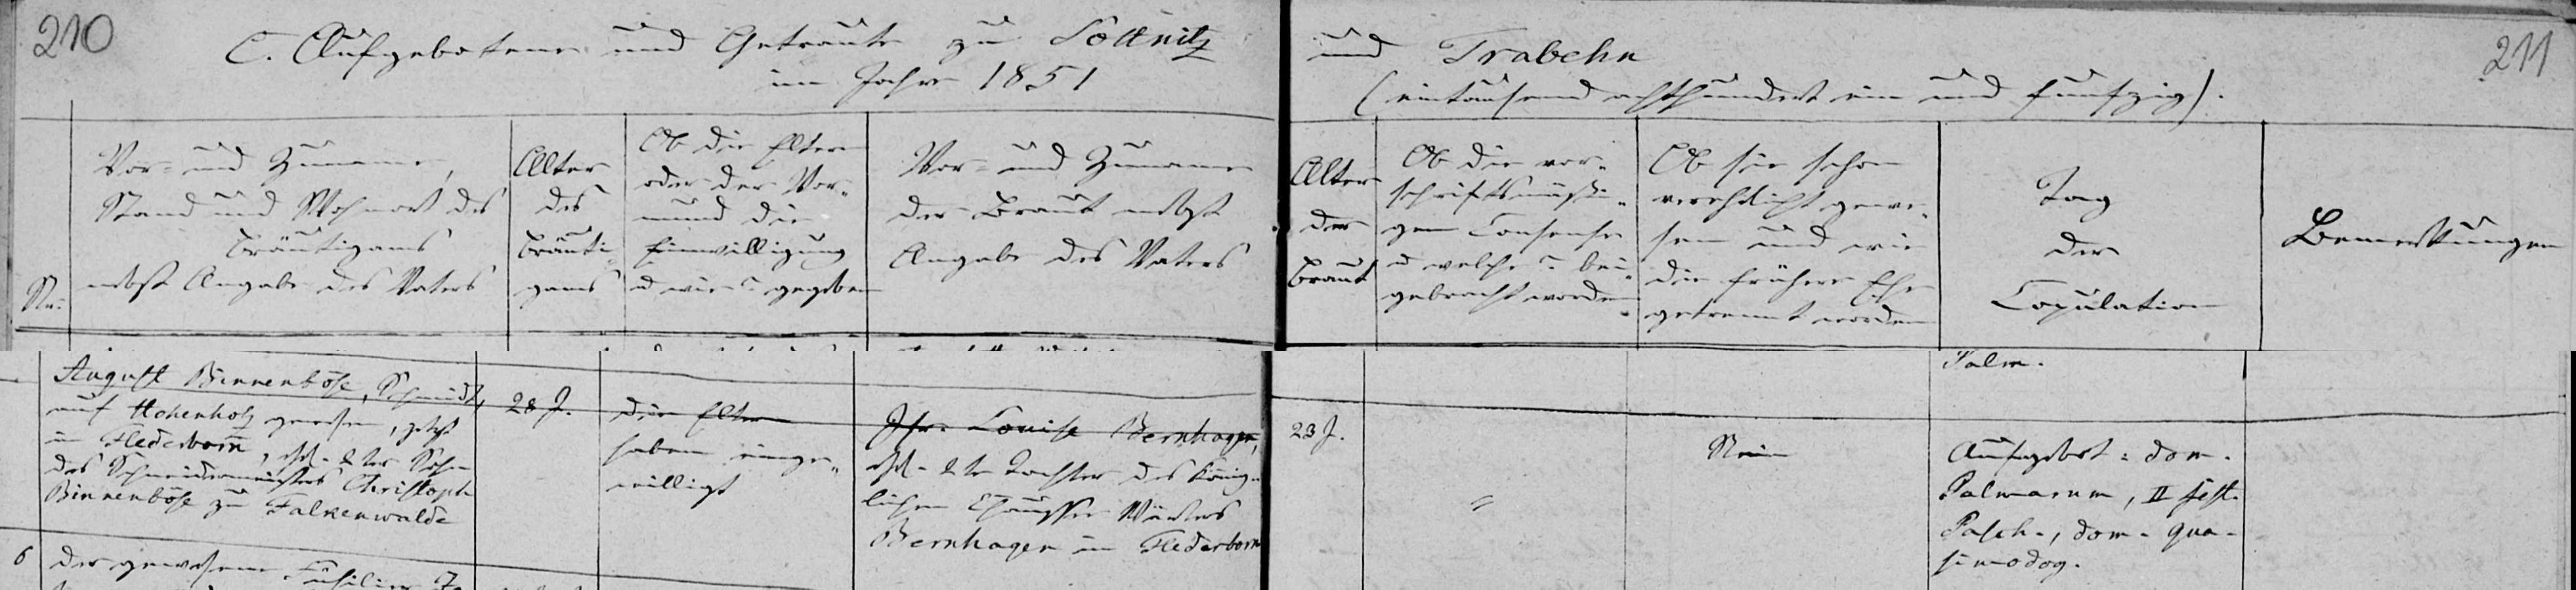 210
C. Aufgebotene und Getraute zu Lottnitz
im Jahre 1851
und Trabehn
(eintausend achthundert ein und funfzig).
211
Nr.
Vor- und Zuname,
Stand und Wohnort des
Bräutigams
nebst Angabe des Vaters
Alter
des
Bräuti-
gams
Ob die Eltern
oder der Vor-
mund die
Einwilligung
u wie? gegeben
Vor- und Zuname
der Braut nebst
Angabe des Vaters
Alter
der
Braut
Ob die vor-
schriftsmäßi-
gen Consense
u welche? bei-
gebracht worden
Ob sie schon
verehelicht gewe-
sen und wie
die frühere Ehe
getrennt worden
Tag
der
Copulation
Bemerkungen
Palm.
August Binnenböse, Schmidt,
auf Hohenholz gewesen, jetzt
in Flederborn, ehel. 2ter Sohn
des Schneidermeisters Christoph
Binnenböse zu Falkenwalde
28 J.
Die Eltern
haben einge-
willigt
Jfr. Louise Bernhagen,
ehel. 2te Tochter des König-
lichen Chaussee Wärters
Bernhagen in Flederborn
23 J.
"
Nein
Aufgebot: dom.
Palmarum, II fest.
Pasch., dom. Qua-
simodog.
6
Der gewesene Füsilier